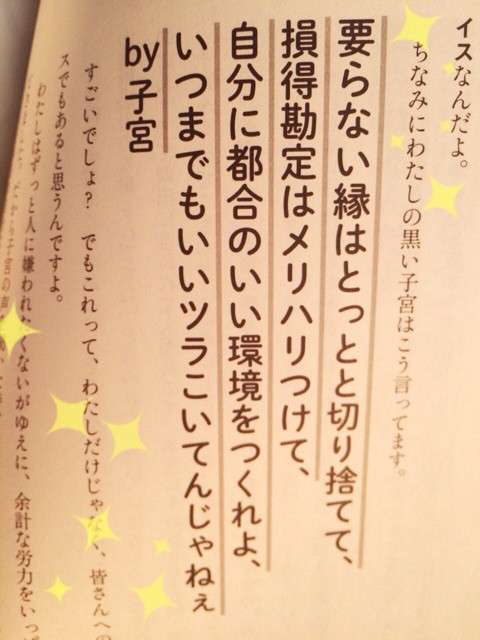 イスなんだよ。
ちなみにわたしの黒い子宮はこう言ってます。
要らない縁はとっとと切り捨てて、
損得勘定はメリハリつけて、
自分に都合のいい環境をつくれよ、
いつまでもいいツラこいてんじゃねぇ
by子宮
すごいでしょ? でもこれって、わたしだけじゃなく、皆さんへの
スでもあると思うんですよ。
わたしはずっと人に嫌われたくないがゆえに、余計な労力をいっぱ